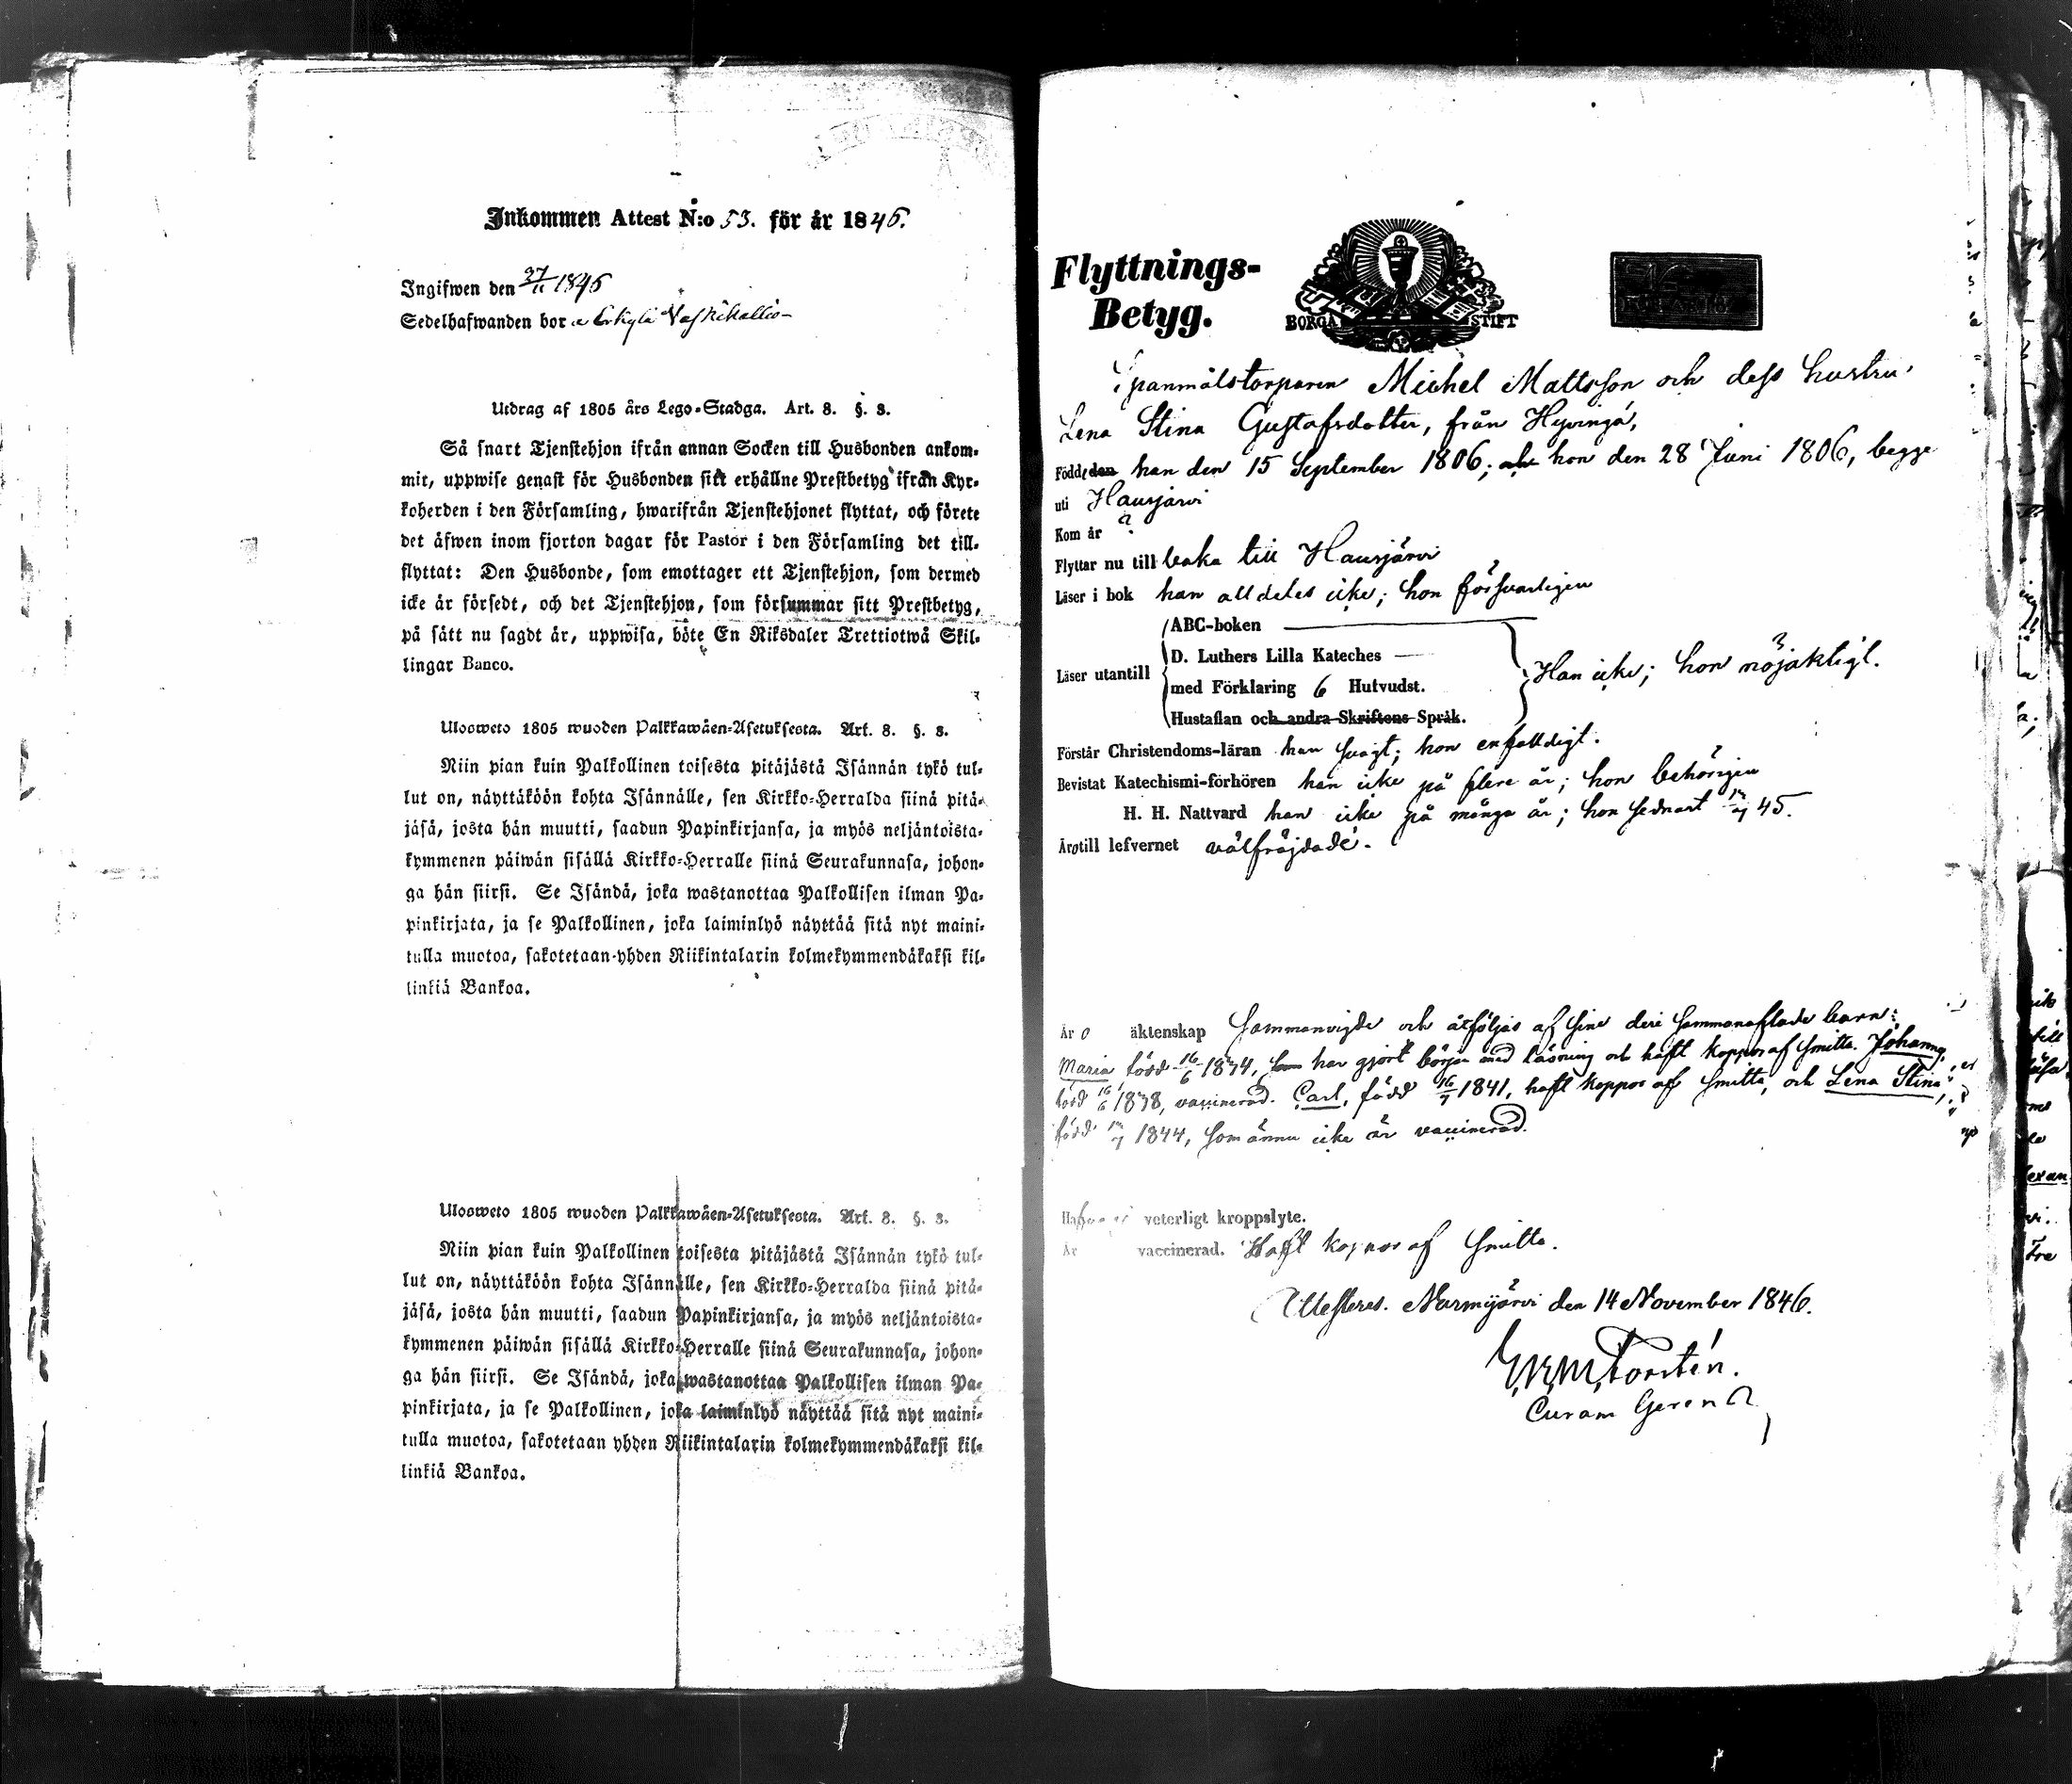 Inkommen Attest N:o 53. för år 1846.
Ingifwen den 27/11 1846
Sedelhafwanden bor a Erkylä
Utdrag af 1805 års Lego-Stadga. Art. 8. §. 3.
Så snart Tjenstehjon ifrån annan Socken till Husbonden ankom-
mit, uppwise genast för Husbonden sitt erhållne Prestbetyg ifrån Kyr-
koherden i den Församling, hwarifrån Tjenstehjonet flyttat, och förete
det äfwen inom fjorton dagar för Pastor i den Församling det till-
flyttat: Den Husbonde, som emottager ett Tjenstehjon, som dermed
icke är försedt, och det Tjenstehjon, som försummar sitt Prestbetyg,
på sätt nu sagdt är, uppwisa, böte En Riksdaler Trettiotwå Skil-
lingar Banco.
Ulosweto 1805 wuoden Palkkawäen-Asetuksesta. Art. 8. §. 3.
Niin pian kuin Palkollinen toisesta pitäjästä Isännän tykö tul-
lut on, näyttäköön kohta Isännälle, sen Kirkko-Herralda siinä pitä-
jäsä, josta hän muutti, saadun Papinkirjansa, ja myös neljäntoista-
kymmenen päiwän sisällä Kirkko-Herralle siinä Seurakunnasa, johon-
ga hän siirsi. Se Isändä, joka wastanottaa Palkollisen ilman Pa-
pinkirjata, ja se Palkollinen, joka laiminlyö näyttää sitä nyt maini-
tulla muotoa, sakotetaan yhden Riikintalarin kolmekymmendäkaksi kil-
linkiä Bankoa.
Ulosweto 1805 wuoden Palkkawäen-Asetuksesta. Art. 8. §. 3.
Niin pian kuin Palkollinen toisesta pitäjästä Isännän tykö tul-
lut on, näyttäköön kohta Isännälle, sen Kirkko-Herralda siinä pitä-
jäsä, josta hän muutti, saadun Papinkirjansa, ja myös neljäntoista-
kymmenen päiwän sisällä Kirkko-Herralle siinä Seurakunnasa, johon-
ga hän siirsi. Se Isändä, joka wastanottaa Palkollisen ilman Pa-
pinkirjata, ja se Palkollinen, joka laiminlyö näyttää sitä nyt maini-
tulla muotoa, sakotetaan yhden Riikintalarin kolmekymmendäkaksi kil-
linkiä Bankoa.
Flyttnings-
Betyg.
BORGÅ STIFT
Spanmålstorparen Michel Mattsson och dess hustru
Lena Stina Gustafsdotter, från Hyvingå,
Födde den han den 15 September 1806; hon den 28 Juni 1806, begge
uti Hausjärvi
Kom år ?
Flyttar nu till baka till Hausjärvi
Läser i bok han alldeles icke; hon försvarligen
ABC-boken
D. Luthers Lilla Kateches
Läser utantill
med Förklaring 6 Hufvudst.
Han icke; hon nöjaktigt.
Hustaflan och andra Skriftens Språk.
Förstår Christendoms-läran han svagt; hon enfalldigt.
Bevistat Katechismi-förhören han icke på flere år; hon behörigen
H. H. Nattvard han icke på många år; hon sednast 45.
Äro till lefvernet välfräjdade.
Är o äktenskap Sammanvigde och åtföljas af sine deri sammanaflade barn:
Maria född 16/6 1834, som har gjort början med läsning och haft koppor af smitta. Johanna,
född 16/6 1838, vaccinerad. Carl, född 16/7 1841, haft koppor af smitta, och Lena Stina,
född 1844, som ännu icke är vaccinerad.
veterligt kroppslyte.
Är vaccinerad. Haft koppor af smitta.
Attesteres. Nurmijärvi den 14 November 1846.
Forstén.
Curam Gerens